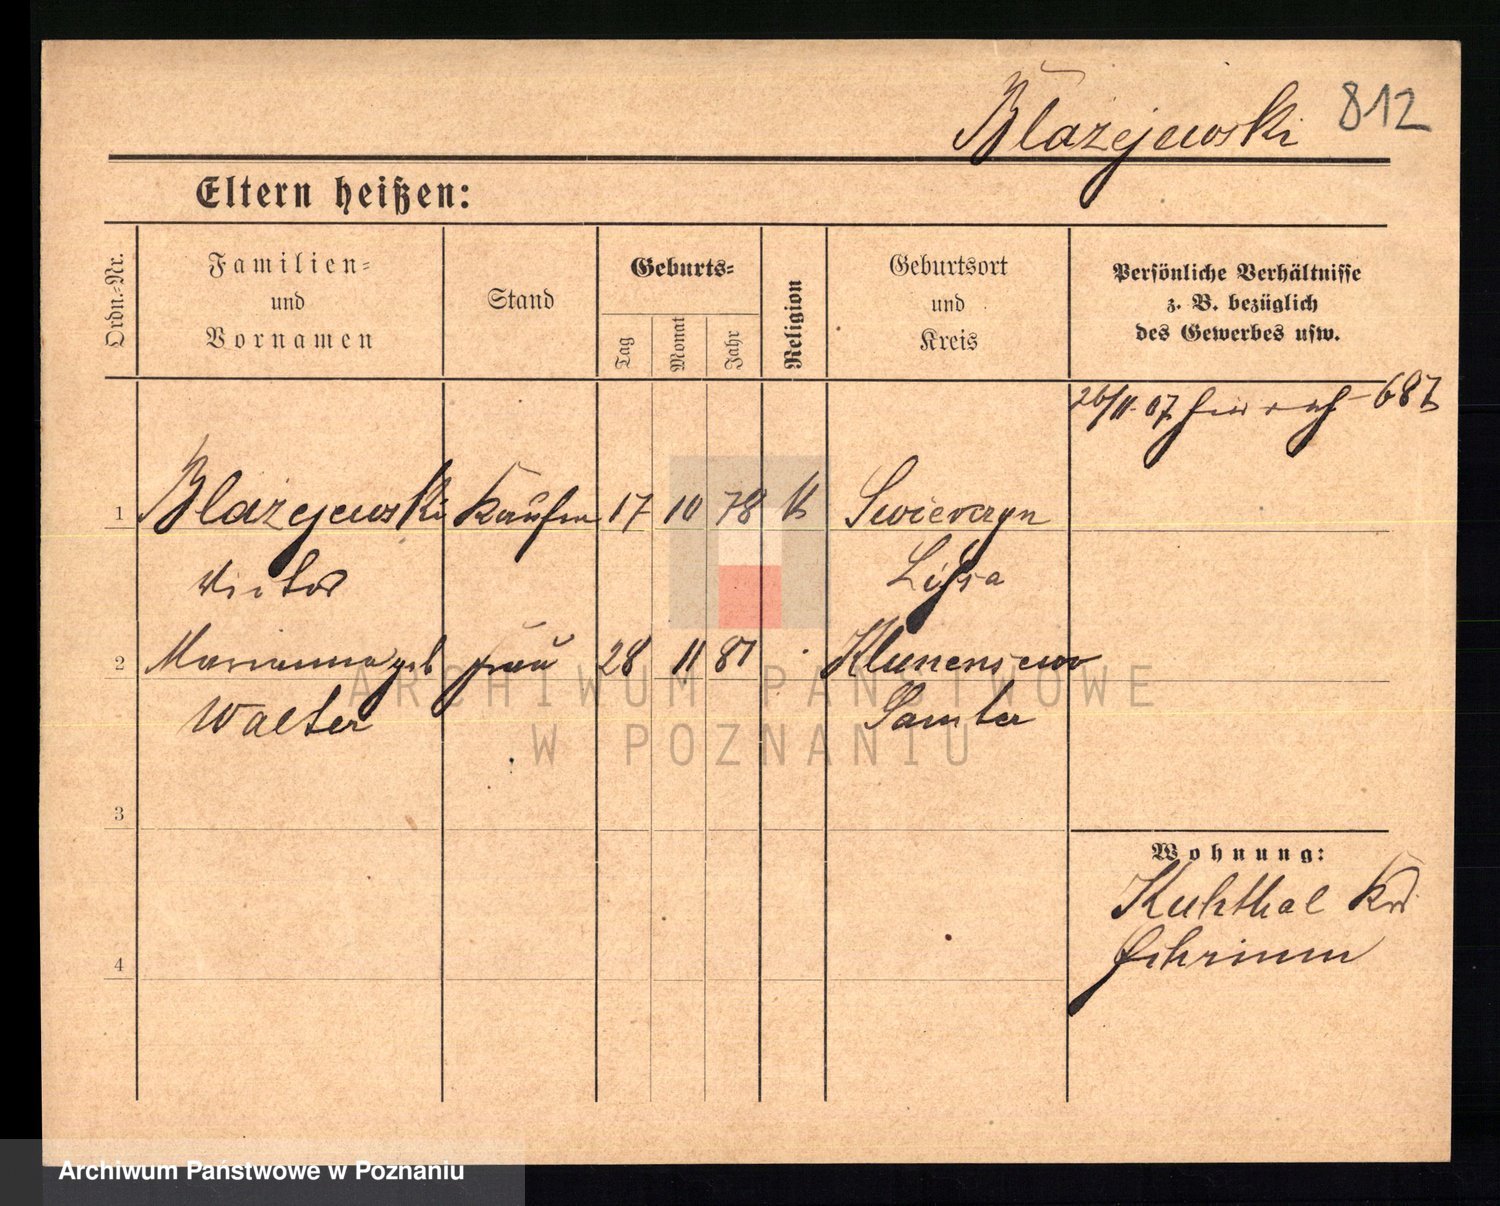 Blazejewski 812
Eltern heißen:
Ordn.-Nr.
Familien-
und
Vornamen
Stand
Geburts-
Tag
Monat
Jahr
Religion
Geburtsort
und
Kreis
Persönliche Verhältnisse
z. B. bezüglich
des Gewerbes usw.
26/11. 07. 687
1 Blazejewski Kaufm 17 10 78 k Swierczyn
Victor Lissa
2 Marianna geb frau 28 11 81
Walter Samter
3
Wohnung:
Kuhthal Kr
4
ARCHIWUM PAŃSTWOWE
W POZNANIU
Archiwum Państwowe w Poznaniu